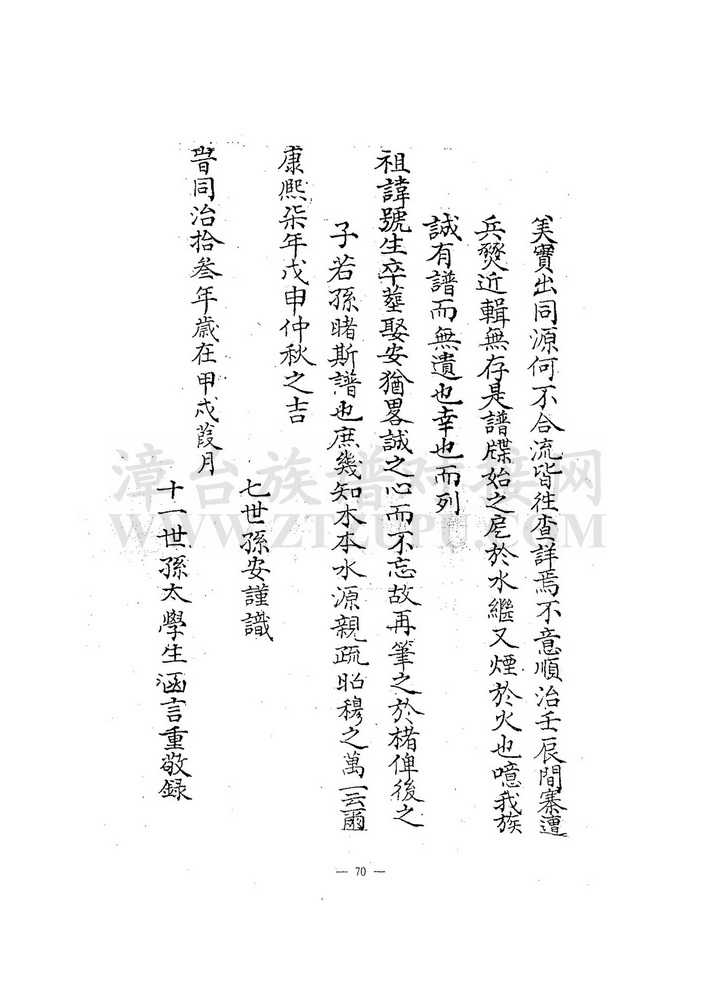 美實出同源何不合流皆往查詳焉不意順治壬辰間寨遭
兵燹近輯無存是譜牒始之戹於水繼又煙於火也噫我族
誠有譜而無遺也幸也而列
祖諱號生卒塟娶安猶畧誠之心而不忘故再筆之於楮俾後之
子若孫睹斯譜也庶幾知木本水源親疏昭穆之萬一云爾
康熙柒年戊申仲秋之吉
七世孫安謹識
旹同治拾叁年歲在甲戌葭月
十一世孫太學生涵言重敬録
漳台族谱对接网
WWW.ZTZUPU.COM
— 70 —